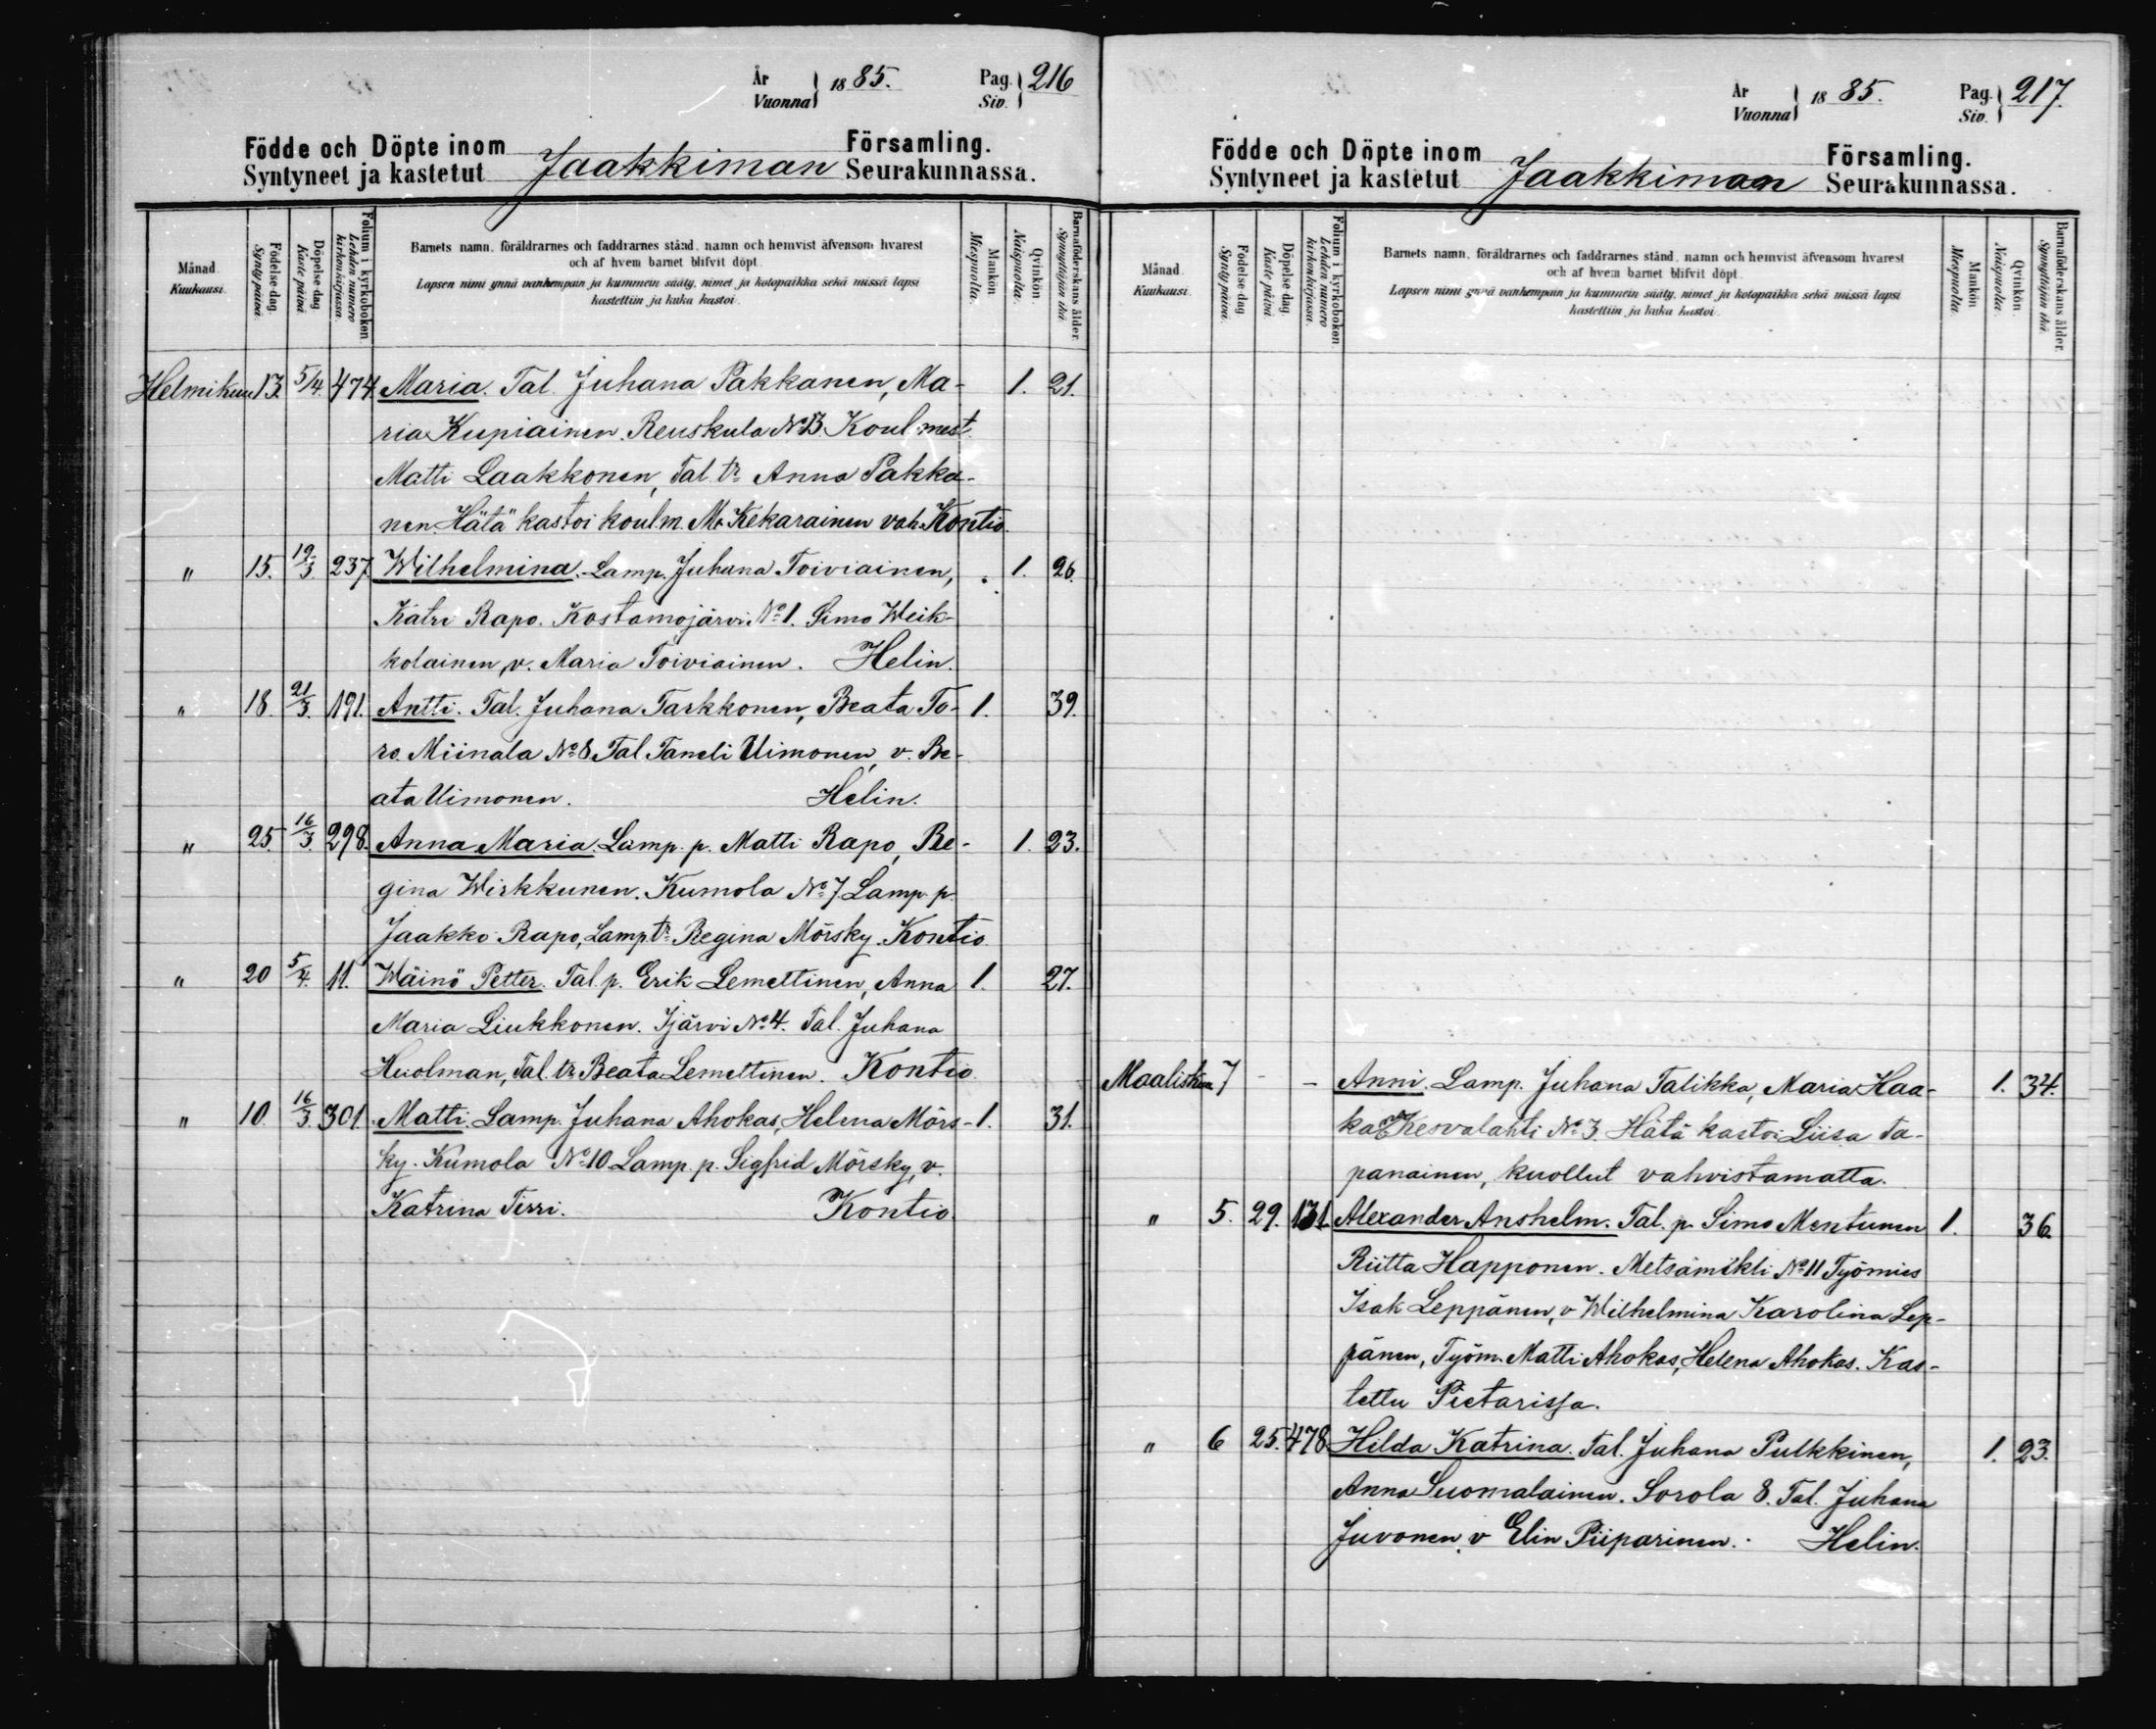 År
Vuonna } 1885. Pag.
Siv. } 216
Födde och Döpte inom Jaakkiman Församling.
Syntyneet ja kastetut Seurakunnassa.
Månad.
Kuukausi.
Födelse dag.
Synty päivä.
Döpelse dag.
Kaste päivä.
Folium i kyrkoboken.
Lehden numero
kirkonkirjassa.
Barnets namn, föräldrarnes och faddrarnes stånd, namn och hemvist äfvensom hvarest
och af hvem barnet blifvit döpt.
Lapsen nimi ynnä vanhempain ja kummein sääty, nimet ja kotopaikka sekä missä lapsi
kastettiin ja kuka kastoi.
Mankön.
Miespuolia.
Qvinkön.
Naispuolia.
Barnaföderskans ålder.
Synnyttäjän ikä.
Helmikuu 13. 5/4. 474. Maria. Tal. Juhana Pakkanen, Ma- 1. 21.
ria Kupiainen. Reuskula No 13. Koul. mest.
Matti Laakkonen, Tal. tr. Anna Pakka-
nen. Hätä kastoi koulm. M. Kekarainen vah. Kontio.
" 15. 19/3. 237. Wilhelmina. Lamp. Juhana Toiviainen, 1. 26.
Katri Rapo. Kostamojärvi No 1. Simo Weik-
kolainen, v. Maria Toiviainen. Helin.
" 18. 21/3. 191. Antti. Tal. Juhana Tarkkonen, Beata To- 1. 39.
ro. Miinala No 8 Tal. Taneli Uimonen, v. Be-
ata Uimonen. Helin.
" 25. 16/3. 298. Anna Maria. Lamp. p. Matti Rapo, Re- 1. 23.
gina Wirkkunen. Kumola No 7. Lamp. p.
Jaakko Rapo, Lamp. tr. Regina Mörsky. Kontio.
" 20 5/4. 11. Wäinö Petter. Tal. p. Erik Lemettinen, Anna 1. 27.
Maria Liukkonen. Ijärvi No 4. Tal. Juhana
Huolman, Tal. tr. Beata Lemettinen. Kontio.
" 10. 16/3. 301. Matti. Lamp. Juhana Ahokas, Helena Mörs- 1. 31.
ky. Kumola No 10. Lamp. p. Sigfrid Mörsky, v.
Katrina Tirri. Kontio.
År
Vuonna } 1885. Pag.
Siv. } 217.
Födde och Döpte inom Jaakkiman Församling.
Syntyneet ja kastetut Seurakunnassa.
Månad.
Kuukausi.
Födelse dag.
Synty päivä.
Döpelse dag.
Kaste päivä.
Folium i kyrkoboken.
Lehden numero
kirkonkirjassa.
Barnets namn, föräldrarnes och faddrarnes stånd, namn och hemvist äfvensom hvarest
och af hvem barnet blifvit döpt.
Lapsen nimi ynnä vanhempain ja kummein sääty, nimet ja kotopaikka sekä missä lapsi
kastettiin ja kuka kastoi.
Mankön.
Miespuolia.
Qvinkön.
Naispuolia.
Barnaföderskans ålder.
Synnyttäjän ikä.
Maaliskuu 7 - - Anni. Lamp. Juhana Talikka, Maria Haa- 1. 34.
No 3. Hätä kastoi Liisa Ta-
panainen, kuollut vahvistamatta.
" 5. 29. 131. Alexander Anshelm. Tal. p. Simo Mentunen 1. 36.
Riitta Happonen. Metsämikli No 11 Työmies
Isak Leppänen, v. Wilhelmina Karolina Lep-
pänen, Työm. Matti Ahokas, Helena Ahokas. Kas-
tettu Pietarissa.
" 6 25. 478. Hilda Katrina. Tal. Juhana Pulkkinen, 1. 23.
Anna Suomalainen. Sorola 8. Tal. Juhana
Juvonen, v Elin Piiparinen. Helin.